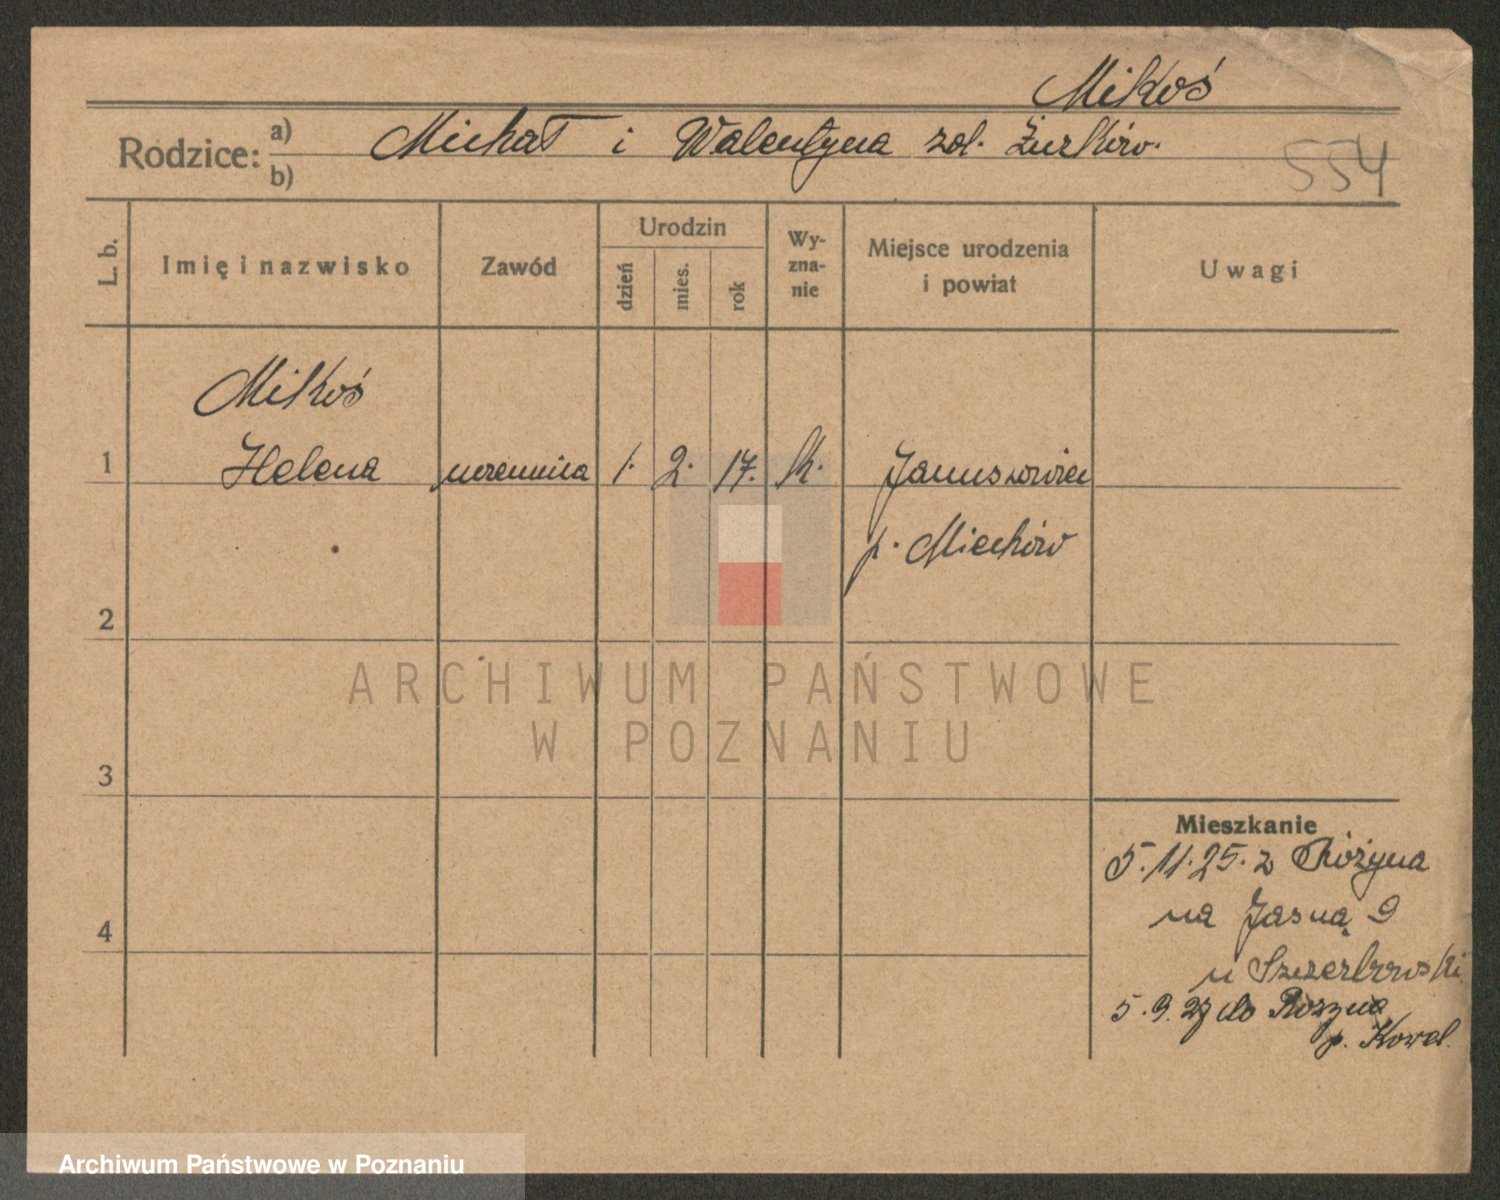 Mikoś
Rodzice: a) Michał i Walentyna zol. Żurków.
b)
554
L. b.
Imię i nazwisko
Zawód
Urodzin
dzień
mies.
rok
Wy-
zna-
nie
Miejsce urodzenia
i powiat
Uwagi
Mikoś
1 Helena uczennica 1. 2. 17. rk. Januszowice
p. Miechów
2
3
4
ARCHIWUM PAŃSTWOWE
W POZNANIU
Mieszkanie
5.11.25. z Różyna
na Jasną 9
u Szczerbowski
5.9.27 do Rożyna
p. Kowel.
Archiwum Państwowe w Poznaniu